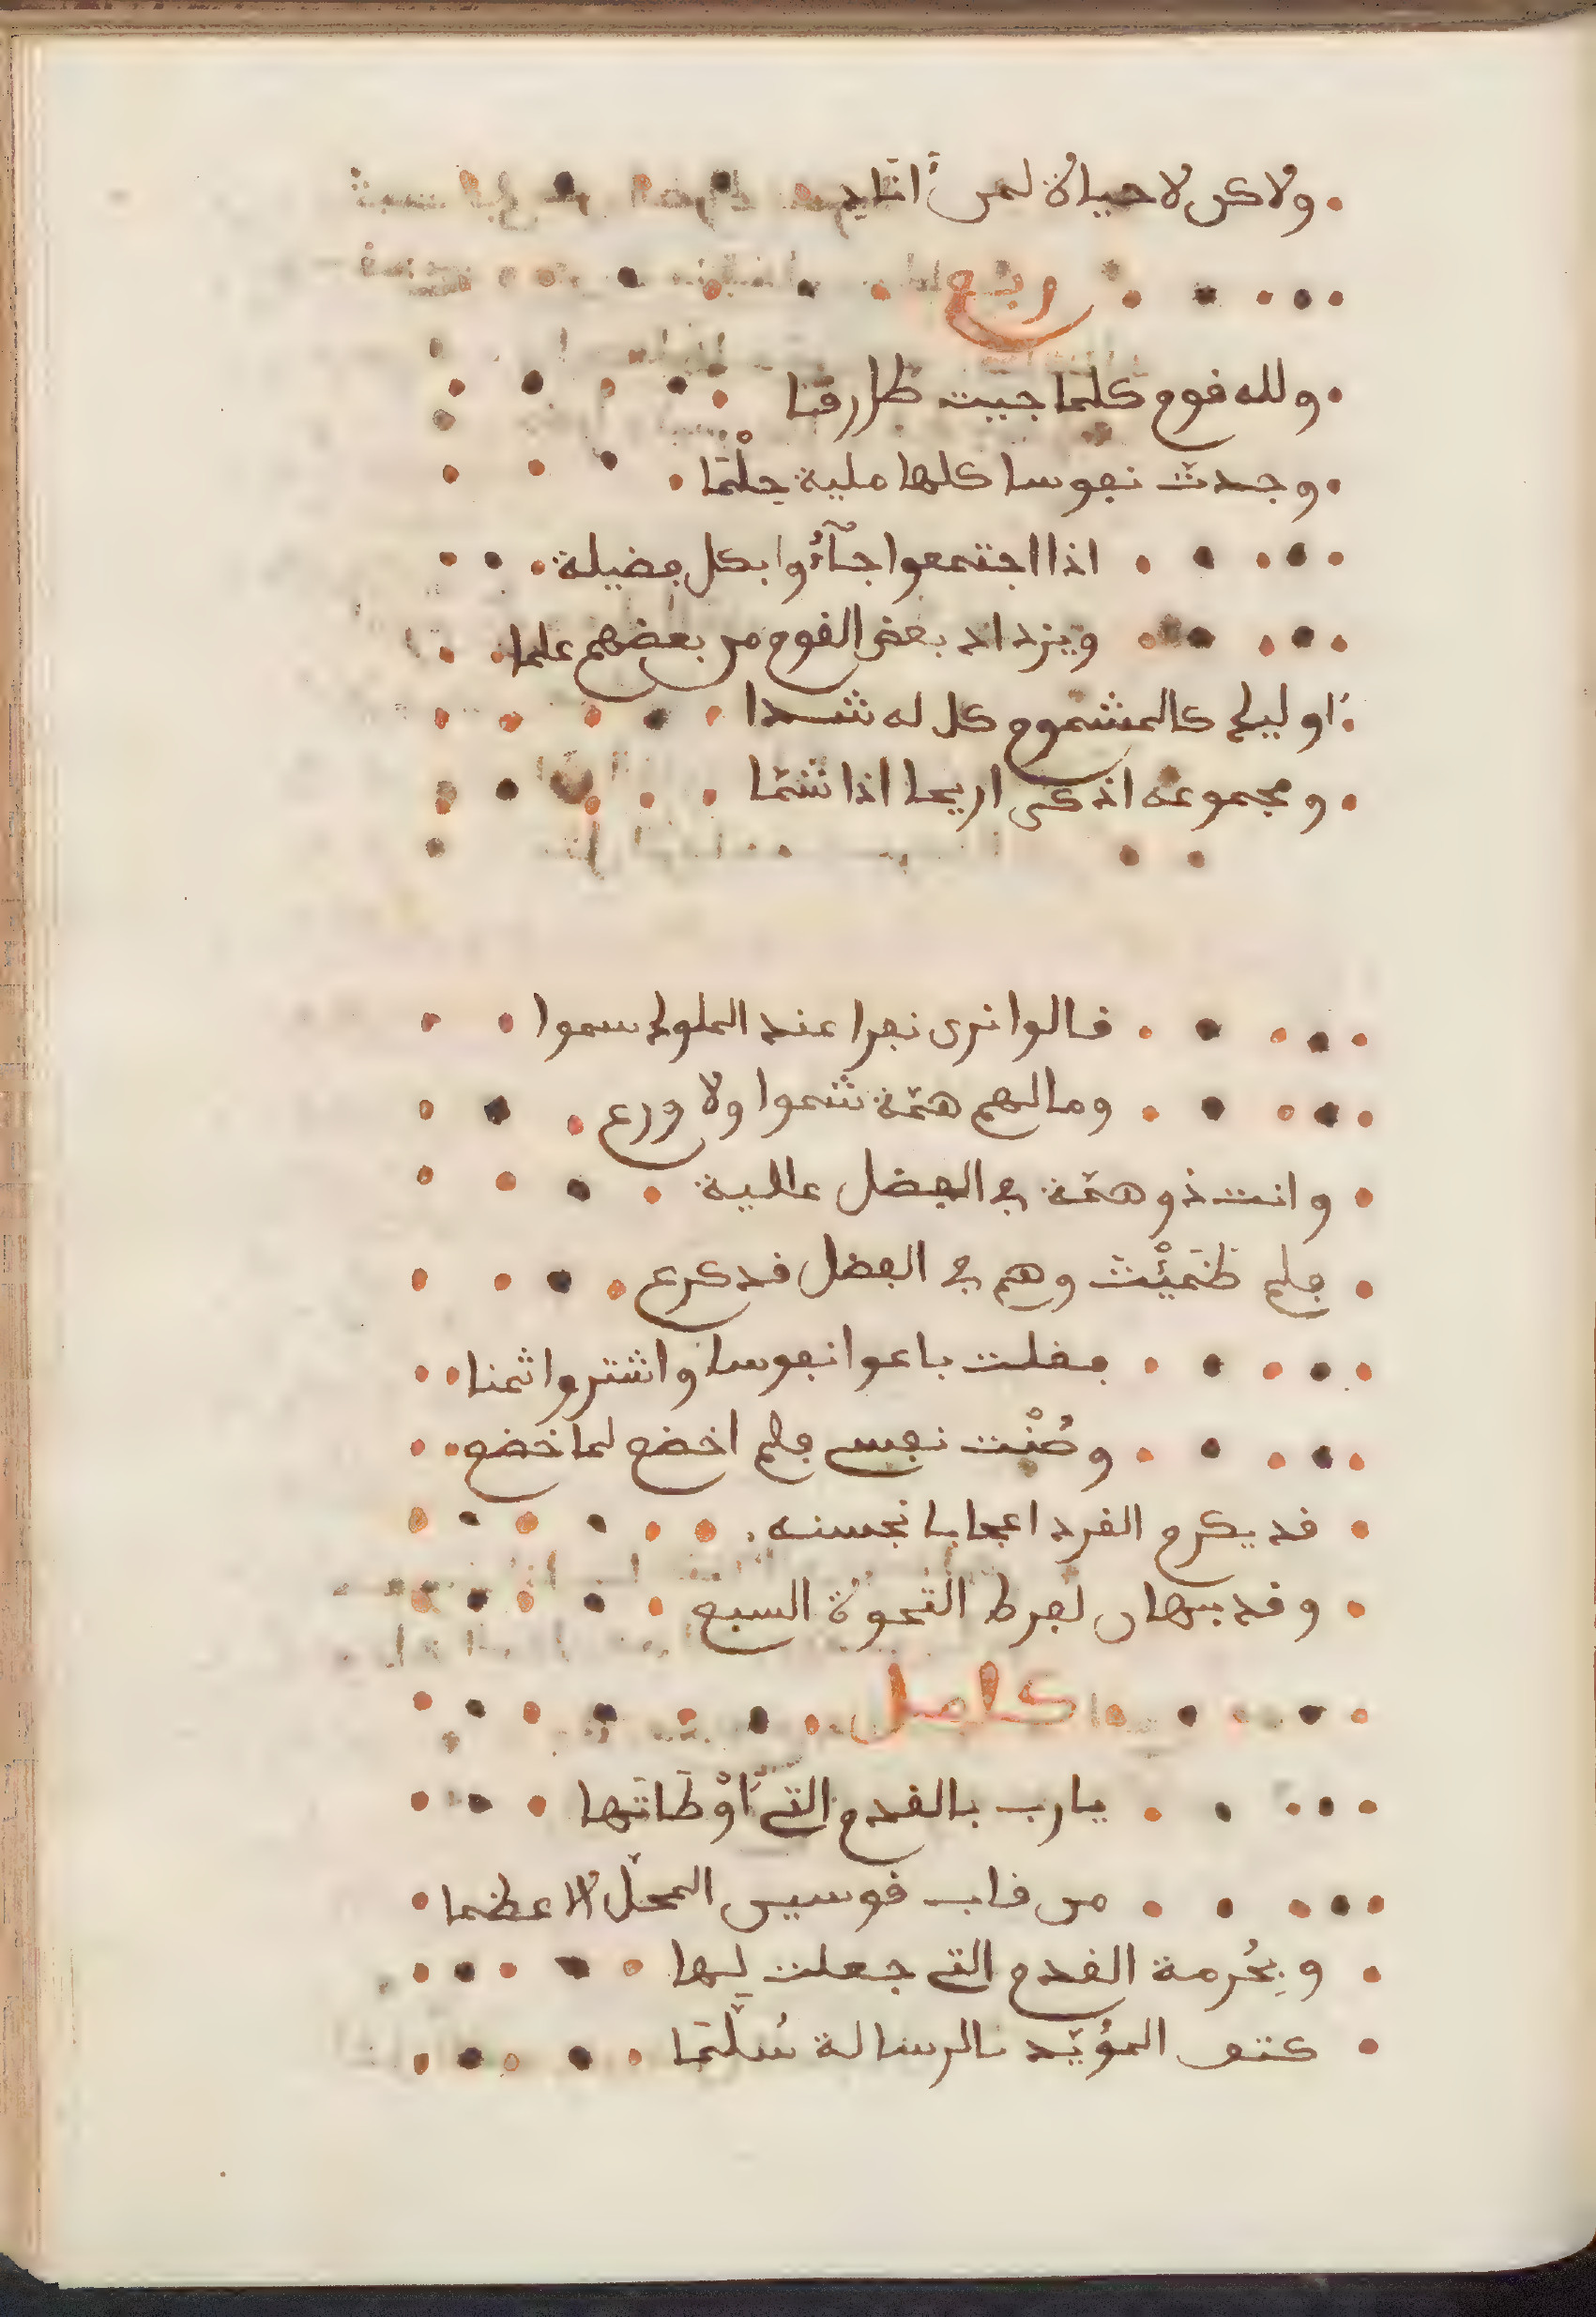 ولاكن لاحياة لمن أنادي
وبح
ولله قوم كلما جيت طارقا
وجدت نفوسا كلها ملية حلْمَا
اذا اجتمعوا جآءُوا بكل فضيلة
ويزداد بعض القوم من بعضهم علما
أوليك كالمشموم كل له شدا
ومجموعه اذكى اريحا اذا شمّا
قالوا نرى نفرا عند الملوك سموا
ومالهم همّة سموا ولا ورع
وانت ذو همّة في الفضل عالية
فلم ظَمَيْت وهم في الفضل قد كرع
فقلت باعوا نفوسا واشتروا ثمنا
وصُنْت نفسي فلم اخضع لما خضع
قد يكرم القرد اعجابا بحسنه
وقد يهان لفرط النّخوة السبع
كامل
يارب بالقدم التي أَوْطَاتَها
من قاب قوسين المحلّ الاعظما
وبِحُرمة القدم التي جعلت لِها
كتف المؤيّد بالرسالة سُلّمَا